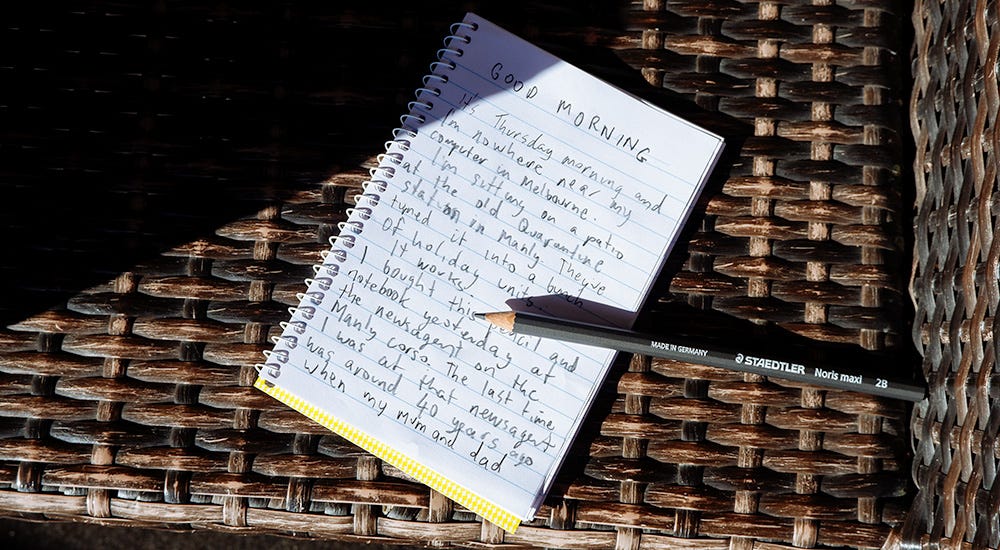 GOOD MORNING
It's Thursday morning and
I'm nowhere near my
computer in Melbourne.
I'm sitting on a patio
at the old Quarantine
station in Manly. They've
turned it into a bunch
Of holiday units
It works
I bought this pencil and
notebook yesterday at
the newsagent on the
Manly corso. The last time
I was at that newsagent
was around 40 years ago
when my mum and
dad
MADE IN GERMANY STAEDTLER Noris maxi 2B